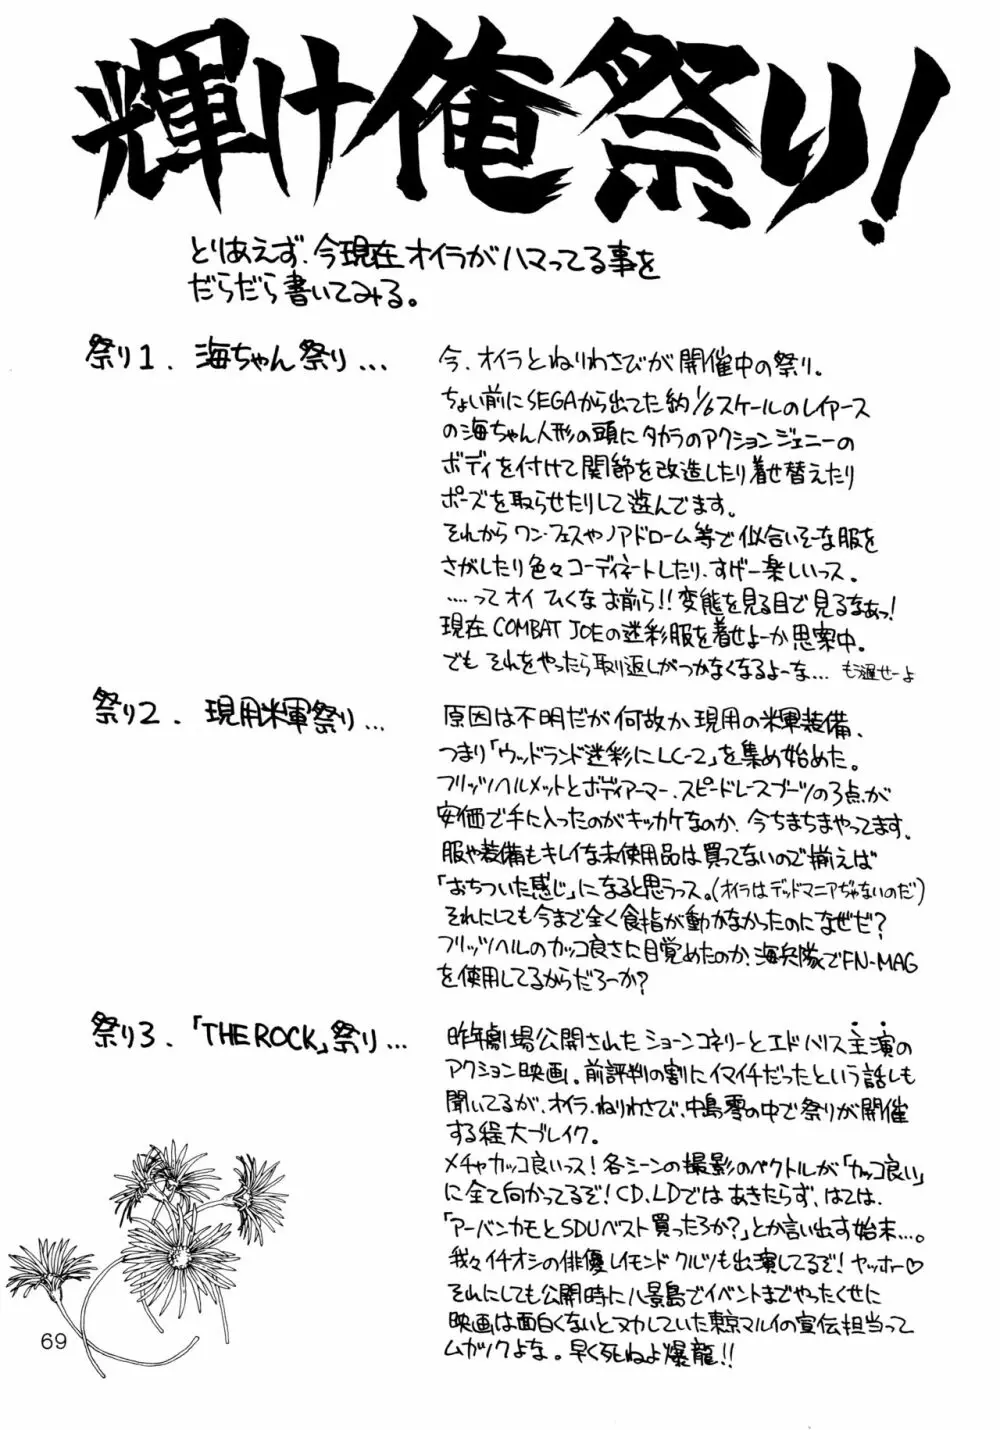 輝け俺祭り!
とりあえず、今現在オイラがハマってる事を
だらだら書いてみる。
祭り1．海ちゃん祭り…
今、オイラとねりわさびが開催中の祭り。
ちょい前にSEGAから出てた約1/6スケールのレイアース
の海ちゃん人形の頭にタカラのアクションジェニーの
ボディを付けて関節を改造したり着せ替えたり
ポーズを取らせたりして遊んでます。
それからワン・フェスやノアドローム等で似合いそーな服を
さがしたり色々コーディネートしたり、すげー楽しいっス。
……ってオイ ひくなお前ら!!変態を見る目で見るなぁっ!
現在COMBAT JOEの迷彩服を着せよーか思案中。
でも それをやったら取り返しがつかなくなるよーな… もう遅せーよ
祭り2．現用米軍祭り…
原因は不明だが何故か現用の米軍装備、
つまり「ウッドランド迷彩にLC-2」を集め始めた。
フリッツヘルメットとボディアーマー、スピードレースブーツの3点が
安価で手に入ったのがキッカケなのか、今ちまちまやってます。
服や装備もキレイな未使用品は買ってないので揃えば
「おちついた感じ」になると思うっス。(オイラはデッドマニアぢゃないのだ)
それにしても今まで全く食指が動かなかったのになぜだ?
フリッツヘルのカッコ良さに目覚めたのか、海兵隊でFN-MAG
を使用してるからだろーか?
祭り3．「THE ROCK」祭り…
昨年劇場公開されたショーンコネリーとエドハリス主演の
アクション映画。前評判の割にイマイチだったという話しも
聞いてるが、オイラ、ねりわさび、中島零の中で祭りが開催
する程大ブレイク。
メチャカッコ良いっス!各シーンの撮影のベクトルが「カッコ良い」
に全て向かってるぞ!CD、LDではあきたらず、はては、
「アーバンカモとSDUベスト買ったろか?」とか言い出す始末…。
我々イチオシの俳優レイモンド クルツも出演してるぞ!ヤッホー♡
それにしても公開時に八景島でイベントまでやったくせに
映画は面白くないとヌカしていた東京マルイの宣伝担当って
ムカツクよな。早く死ねよ爆龍!!
69